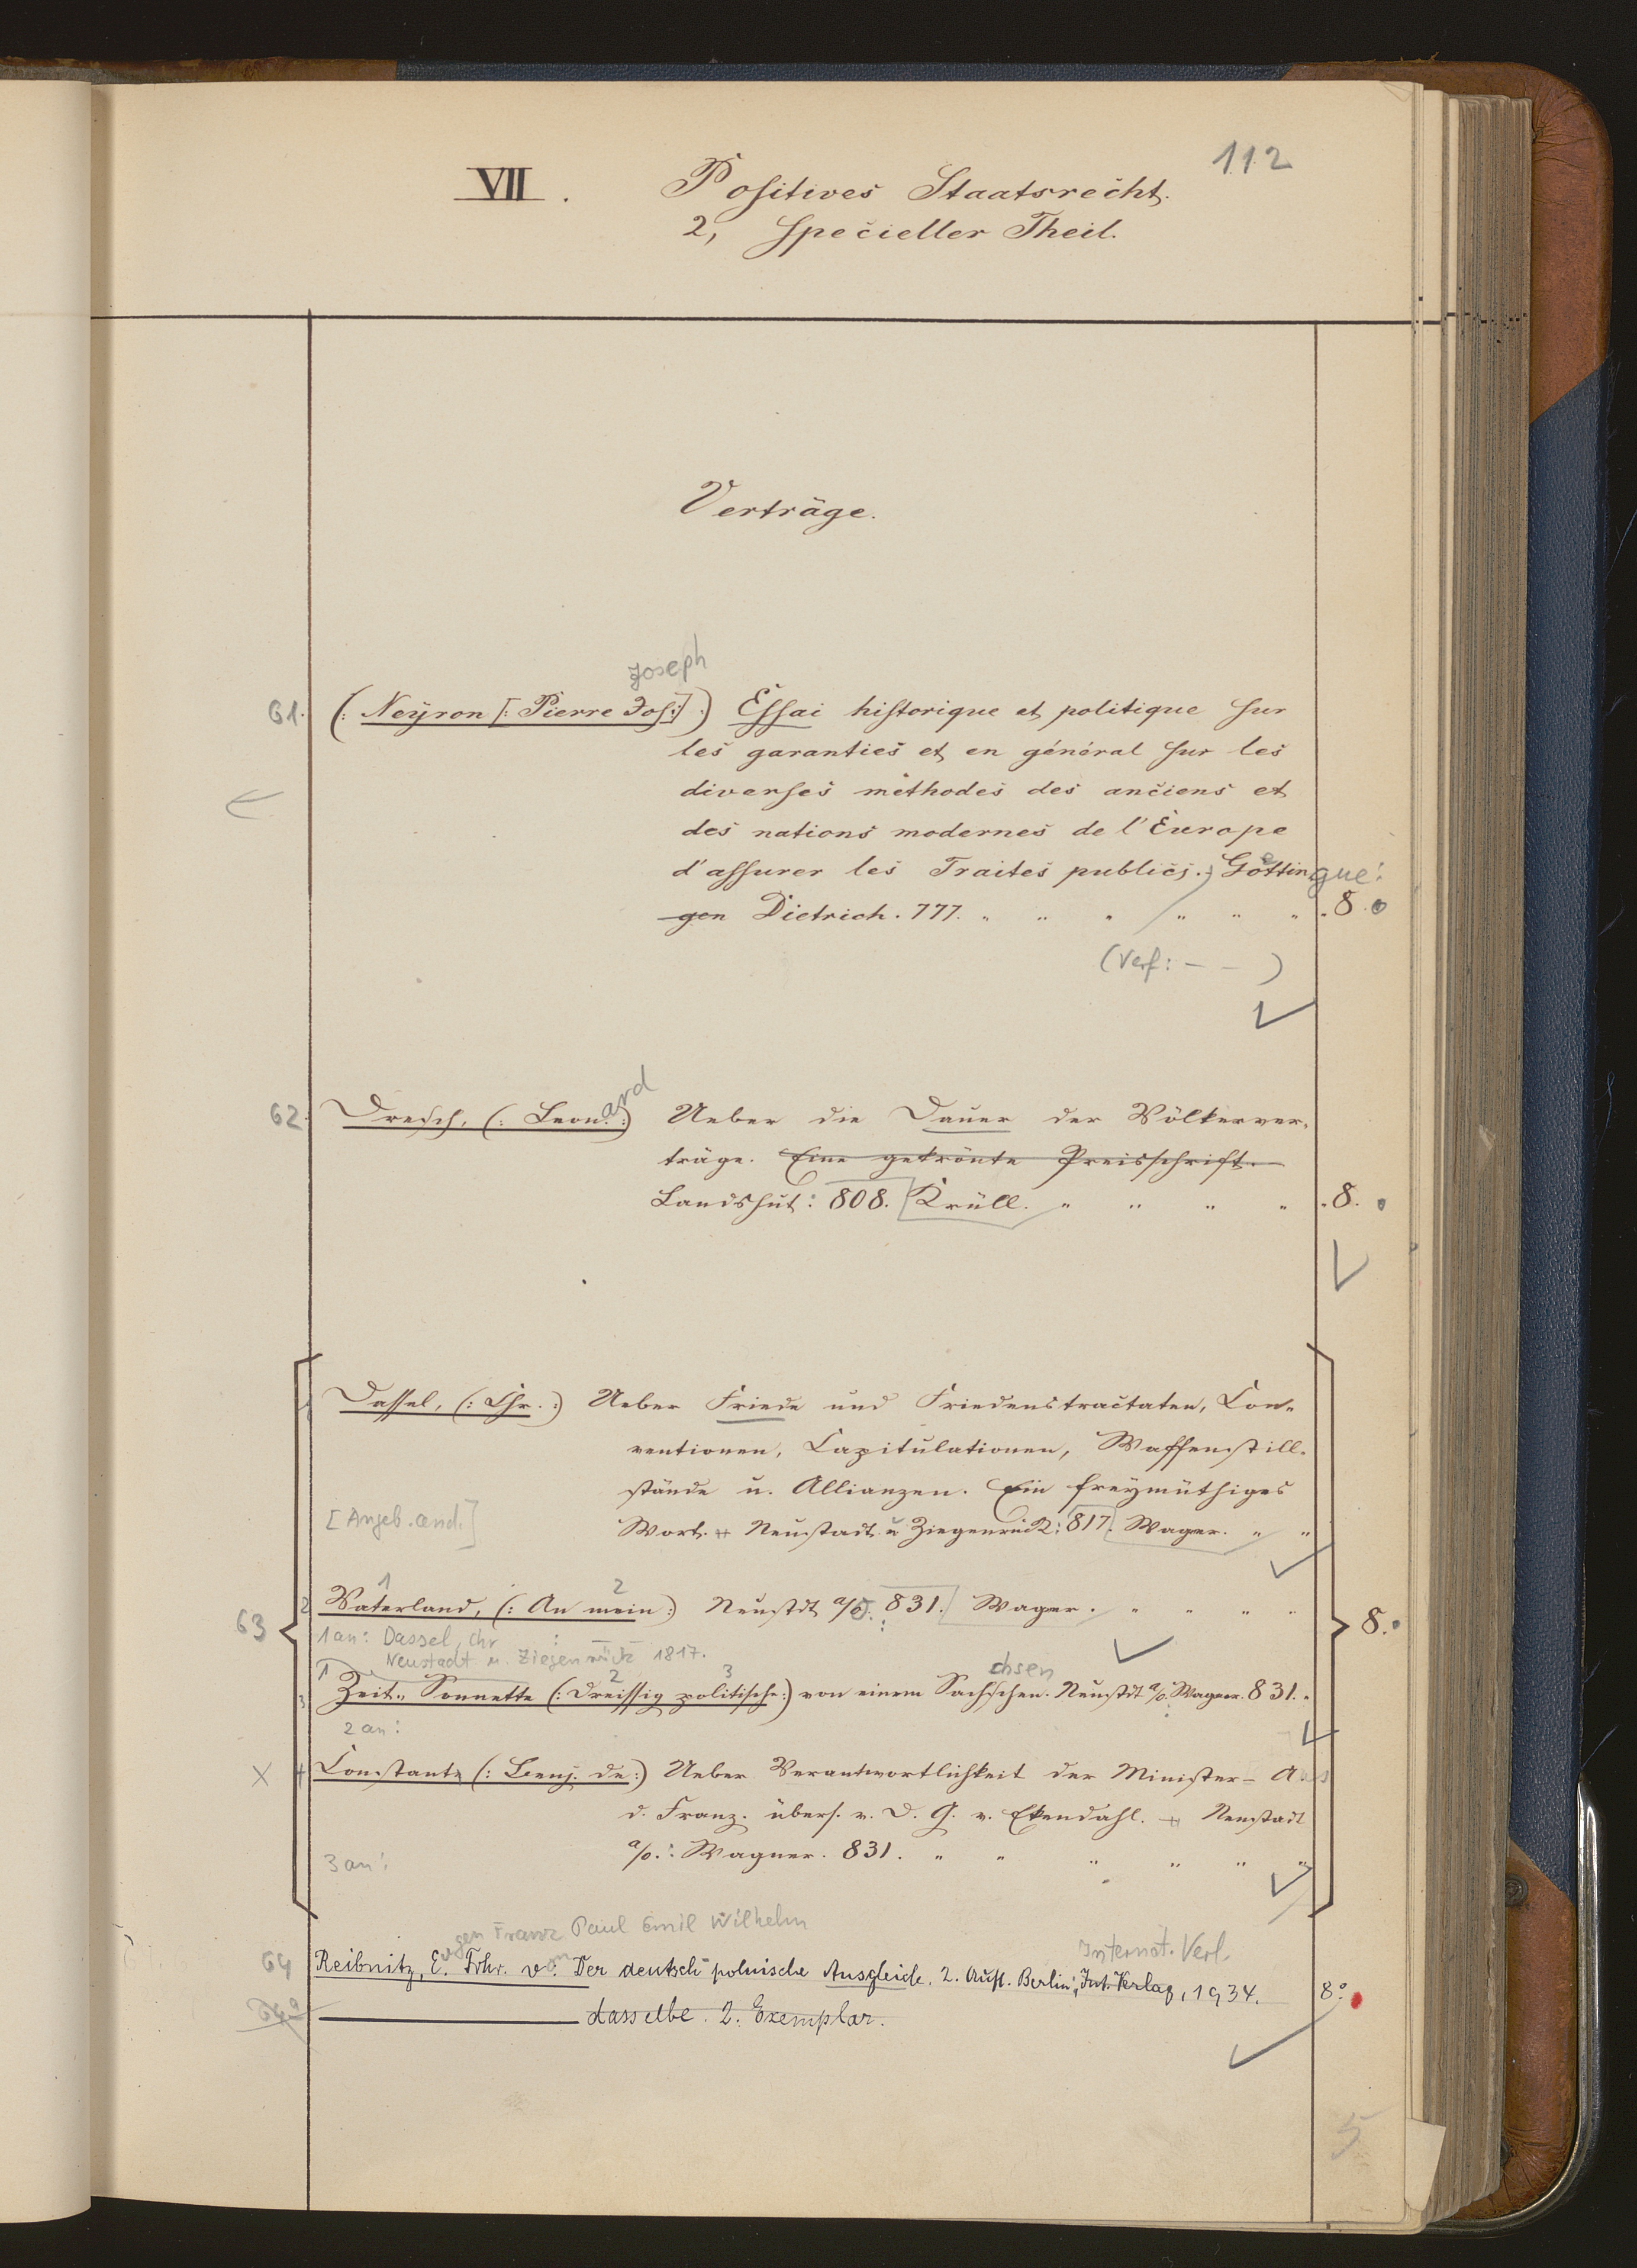 112
VII. Positives Staatsrecht.
2, specieller Theil.
Verträge.
Joseph
61. (: Neÿron [: Pierre Jos:] :) Essai historique et politique sur
les garanties et en général sur les
diverses méthodes des anciens et
des nations modernes de l'Europe
d'assurer les Traités publics. Göttingue:
gen Dietrich. 777. " " " " " " 8.
(Verf: – – )
ard
62. Dresch, (: Leon. :) Ueber die Dauer der Völkerver-
träge. Eine gekrönte Preisschrift.
Landshut: 808. Krüll. " " " " 8.
Dassel, (: Chr. :) Ueber Friede und Friedenstractaten, Con-
ventionen, Capitulationen, Waffenstill-
stände u. Allianzen. Ein freÿmüthiges
[Angeb. and.] Wort. Neustadt u Ziegenrück: 817. Wagner. " "
1 2
2 Vaterland, (: An mein :) Neustdt a/O. 831. Wagner. " " " "
63 8.
1 an: Dassel, Chr :
Neustadt u. Ziegenrück 1817.
1 2 3 chsen
3 Zeit-Sonnette (: Dreissig politische :) von einem Sachschen. Neustdt a/O. Wagner. 831. "
2 an:
X 4 Constant (: Benj. de :) Ueber Verantwortlichkeit der Minister - Aus
d. Franz. übers. v. D. G. v. Ekendahl. Neustadt
3 an: a/O.: Wagner. 831. " " " " " "
gen Franz Paul Emil Wilhelm
Internat. Verl.
64 Reibnitz, E. Frhr. von. Der deutsch-polnische Ausgleich. 2. Aufl. Berlin: Int. Verlag, 1934. 8°
64a dasselbe. 2. Exemplar.
5